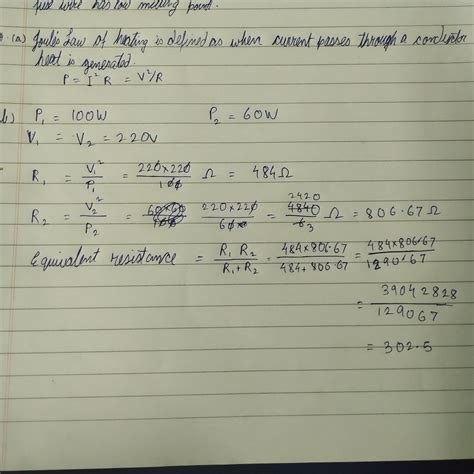 fuse wire has low melting point.
(a) Joules Law of heating is defined as when current passes through a conductor
heat is generated.
P = I² R = V²/R
b) P₁ = 100W P₂ = 60W
V₁ = V₂ = 220V
R₁ = V₁²/P₁ = 220×220/100 Ω = 484Ω
R₂ = V₂²/P₂ = 220×220/60 = 2420 4840/6 3 Ω = 806.67Ω
Equivalent resistance = R₁ R₂/R₁+R₂ = 484×806.67/484+806.67 = 484×806.67/1290.67
= 39042828/129067
= 302.5